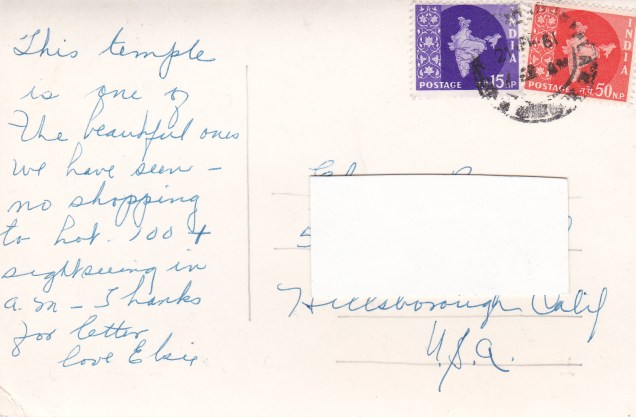 This temple
is one of
the beautiful ones
we have seen –
no shopping
to hot. 100 +
sightseeing in
a.m – Thanks
for letter
love Elsie
INDIA
POSTAGE 15 N.P.
INDIA
POSTAGE 50 N.P.
61
Hillsborough Calif
U.S.A.